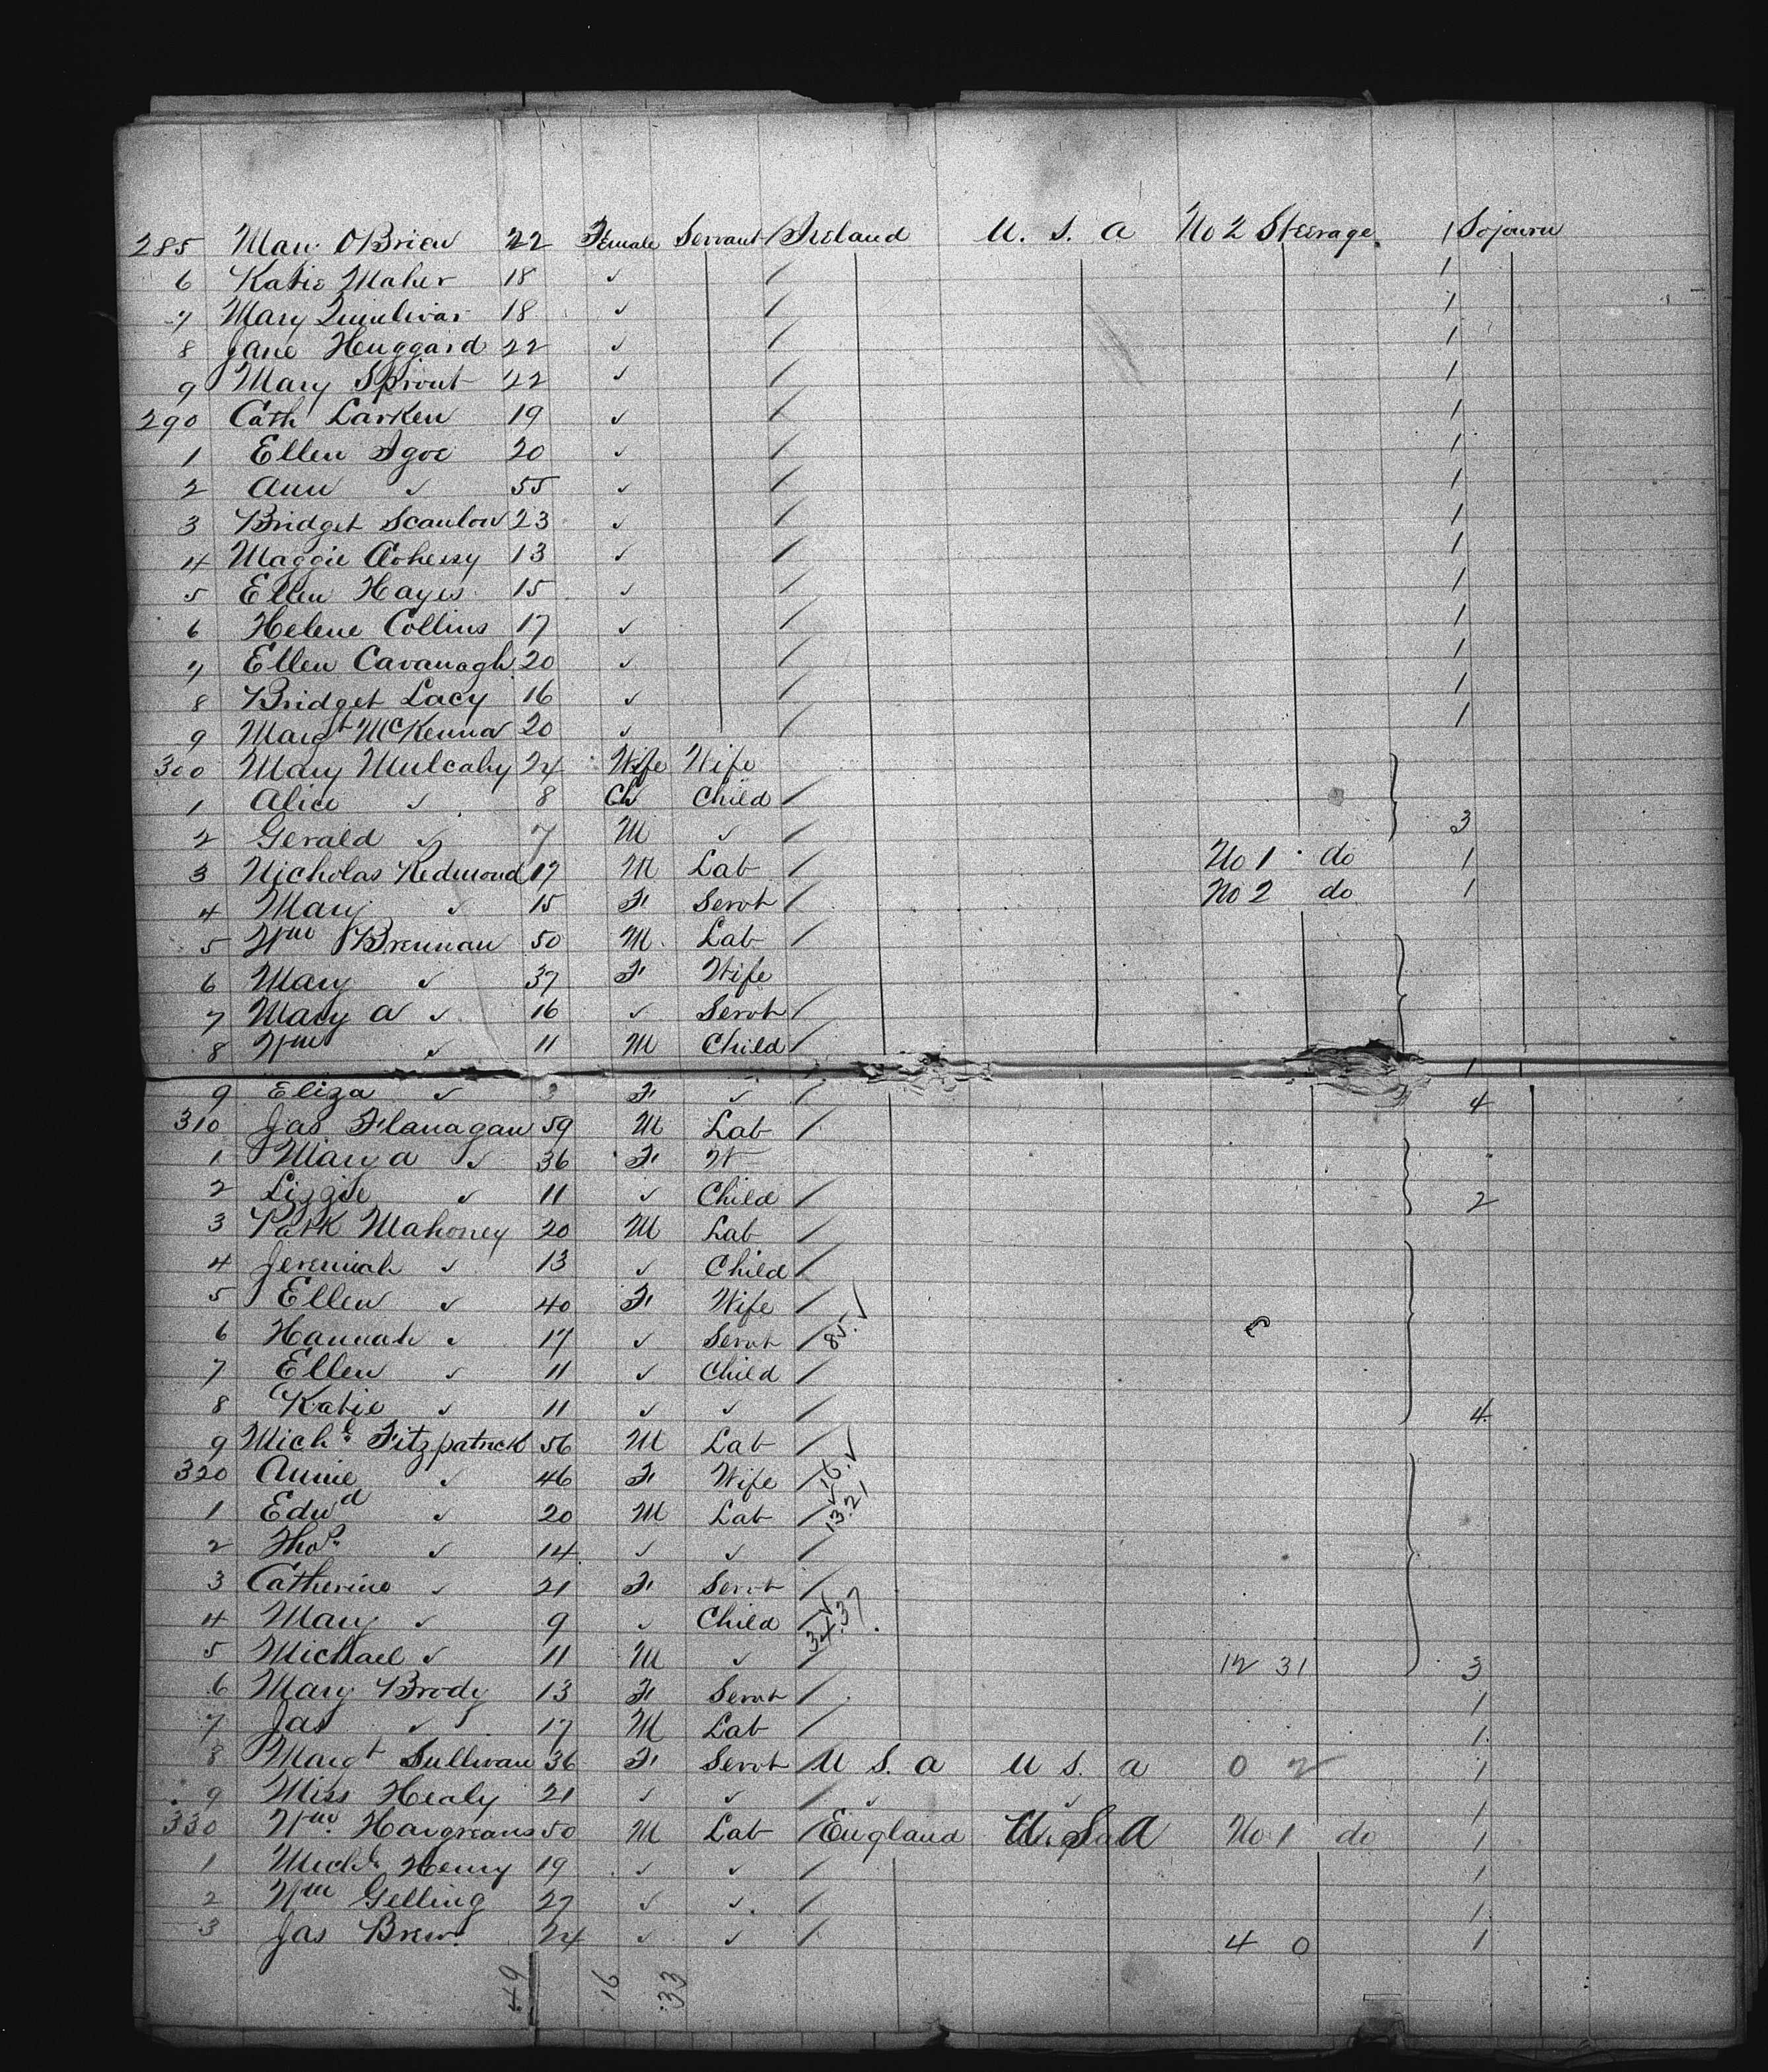 285 Mary OBrien 22 Female Servant / Ireland U. S. A No 2 Steerage 1 Sojourn
6 Katie Maher 18 ✓ / 1
7 Mary Quinlivan 18 ✓ / 1
8 Jane Huggard 22 ✓ / 1
9 Mary Sprout 22 ✓ / 1
290 Cath Larken 19 ✓ / 1
1 Ellen Igoe 20 ✓ / 1
2 Ann ✓ 55 ✓ / 1
3 Bridget Scanlon 23 ✓ / 1
4 Maggie Ahessy 13 ✓ / 1
5 Ellen Hayes 15 ✓ / 1
6 Helene Collins 17 ✓ / 1
7 Ellen Cavanagh 20 ✓ / 1
8 Bridget Lacy 16 ✓ / 1
9 Margt McKenna 20 ✓ / 1
300 Mary Mulcahy 24 Wife Wife
1 Alice ✓ 8 Ch Child /
2 Gerald ✓ 7 M ✓ / 3
3 Nicholas Redmond 17 M Lab / No 1 do 1
4 Mary ✓ 15 F Servt / No 2 do 1
5 Wm Brennan 50 M Lab /
6 Mary ✓ 37 F Wife
7 Mary A ✓ 16 ✓ Servt /
8 Wm ✓ 11 M Child / 1
9 Eliza ✓ 3 F ✓ / 4
310 Jas Flanagan 59 M Lab /
1 Mary A ✓ 36 F W
2 Lizzie ✓ 11 ✓ Child / 2
3 Patk Mahoney 20 M Lab /
4 Jeremiah ✓ 13 ✓ Child /
5 Ellen ✓ 40 F Wife /
6 Hannah ✓ 17 ✓ Servt / 85 ✓
7 Ellen ✓ 11 ✓ Child /
8 Katie ✓ 11 ✓ ✓ / 4
9 Michl Fitzpatrick 56 M Lab /
320 Annie ✓ 46 F Wife / 16 ✓
1 Edwd ✓ 20 M Lab / 13.21
2 Thos ✓ 14 ✓ ✓ /
3 Catherine ✓ 21 F Servt /
4 Mary ✓ 9 ✓ Child / 34.37
5 Michael ✓ 11 M ✓ / 12 31 3
6 Mary Brody 13 F Servt / 1
7 Jas ✓ 17 M Lab / 1
8 Margt Sullivan 36 F Servt / U S. A U S. A 0 2 1
9 Miss Healy 21 ✓ ✓ / ✓ ✓ 1
330 Wm Hargreaves 50 M Lab / England U. S. A No 1 do 1
1 Michl Henry 19 ✓ ✓ / 1
2 Wm Gelling 27 ✓ ✓ / 1
3 Jas Brew 24 ✓ ✓ / 4 0 1
49 16 33